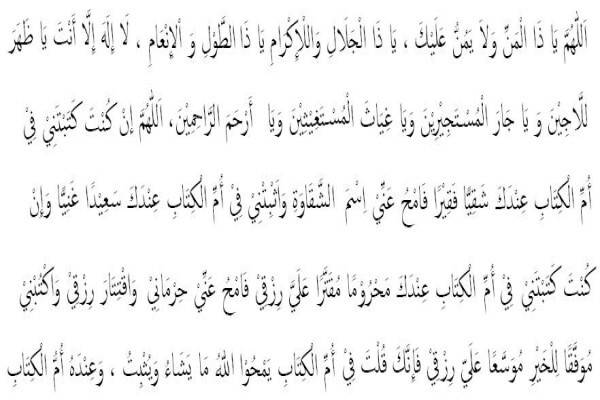 اَللّٰهُمَّ يَا ذَا الْمَنِّ وَلَا يَمُنُّ عَلَيْكَ ، يَا ذَا الْجَلَالِ وَاللْإِكْرَامِ يَا ذَا الطَّوْلِ وَ اْلإِنْعَامِ ، لَا إِلَهَ إِلَّا أَنْتَ يَا ظَهَرَ
للَّاجِيْنَ وَ يَا جَارَ الْمُسْتَجِيْرِيْنَ وَيَا غِيَاثَ الْمُسْتَغِيْثِيْنَ وَيَا أَرْحَمَ الرَّاحِمِيْنَ، اَللّٰهُمَّ إِنْ كُنْتَ كَتَبْتَنِيْ فِيْ
أُمِّ الْكِتَابِ عِنْدَكَ شَقِيًّا فَقِيْرًا فَامْحُ عَنِّيْ اِسْمَ الشَّقَاوَةِ وَاَثْبِتْنِيْ فِيْ أُمِّ الْكِتَابِ عِنْدَكَ سَعِيْدًا غَنِيًّا وَإِنْ
كُنْتَ كَتَبْتَنِيْ فِيْ أُمِّ الْكِتَابِ عِنْدَكَ مَحْرُوْمًا مُقَتَّرًا عَلَيَّ رِزْقِيْ فَامْحُ عَنِّيْ حِرْمَانِيْ وَاقْتِتَارَ رِزْقِيْ وَاكْتُبْنِيْ
مُوَفَّقًا لِلْخَيْرِ مُوَسَّعًا عَلَيَّ رِزْقِيْ فَإِنَّكَ قُلْتَ فِيْ أُمِّ الْكِتَابِ يَمْحُوْا اللهُ مَا يَشَاءُ وَيُثْبِتُ ، وَعِنْدَهُ أُمُّ الْكِتَابِ